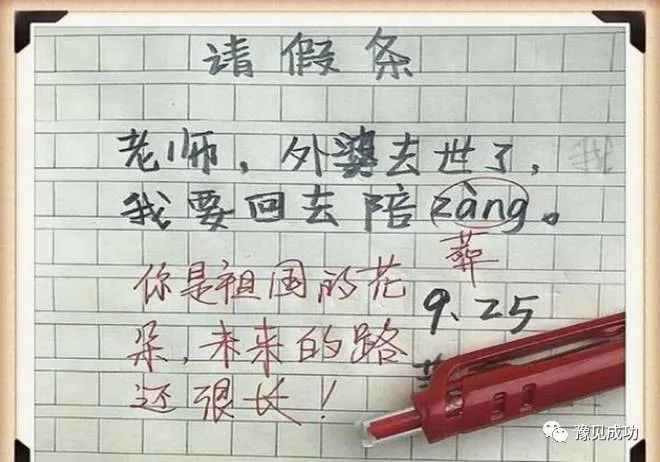 请假条
老师，外婆去世了，
我要回去陪zàng。
葬
9.25
你是祖国的花
朵，未来的路
还很长！
豫见成功